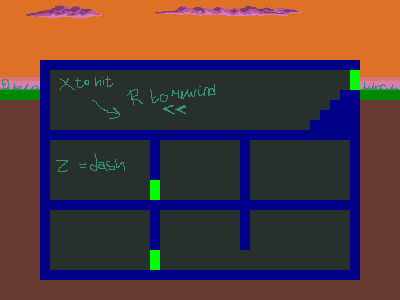 X to hit
R to rewind
<<
Z = dash